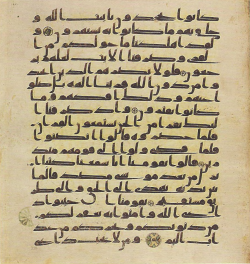 كانوا يجحدون بايت الله و
حاق بهم ما كانوا به يستهزون و
لقد اهلكنا ما حولكم من ا
لقرى وصرفنا الايت لعلهم ير
جعون فلولا نصرهم الذين اتخذو
ا من دون الله قربانا الهة بل ضلو
ا عنهم وذلك افكهم وما
كانوا يفترون واذ صرفنا ا
ليك نفرا من الجن يستمعون القران
فلما حضروه قالوا انصتوا
فلما قضي ولوا الى قومهم منذر
ين قالوا يقومنا انا سمعنا كتبا ا
نزل من بعد موسى مصدقا لما بين
يديه يهدي الى الحق والى طر
يق مستقيم يقومنا اجيبوا د
اعي الله وامنوا به يغفر لكم
من ذنوبكم ويجركم من عذ
اب اليم ومن لا يجب داعي